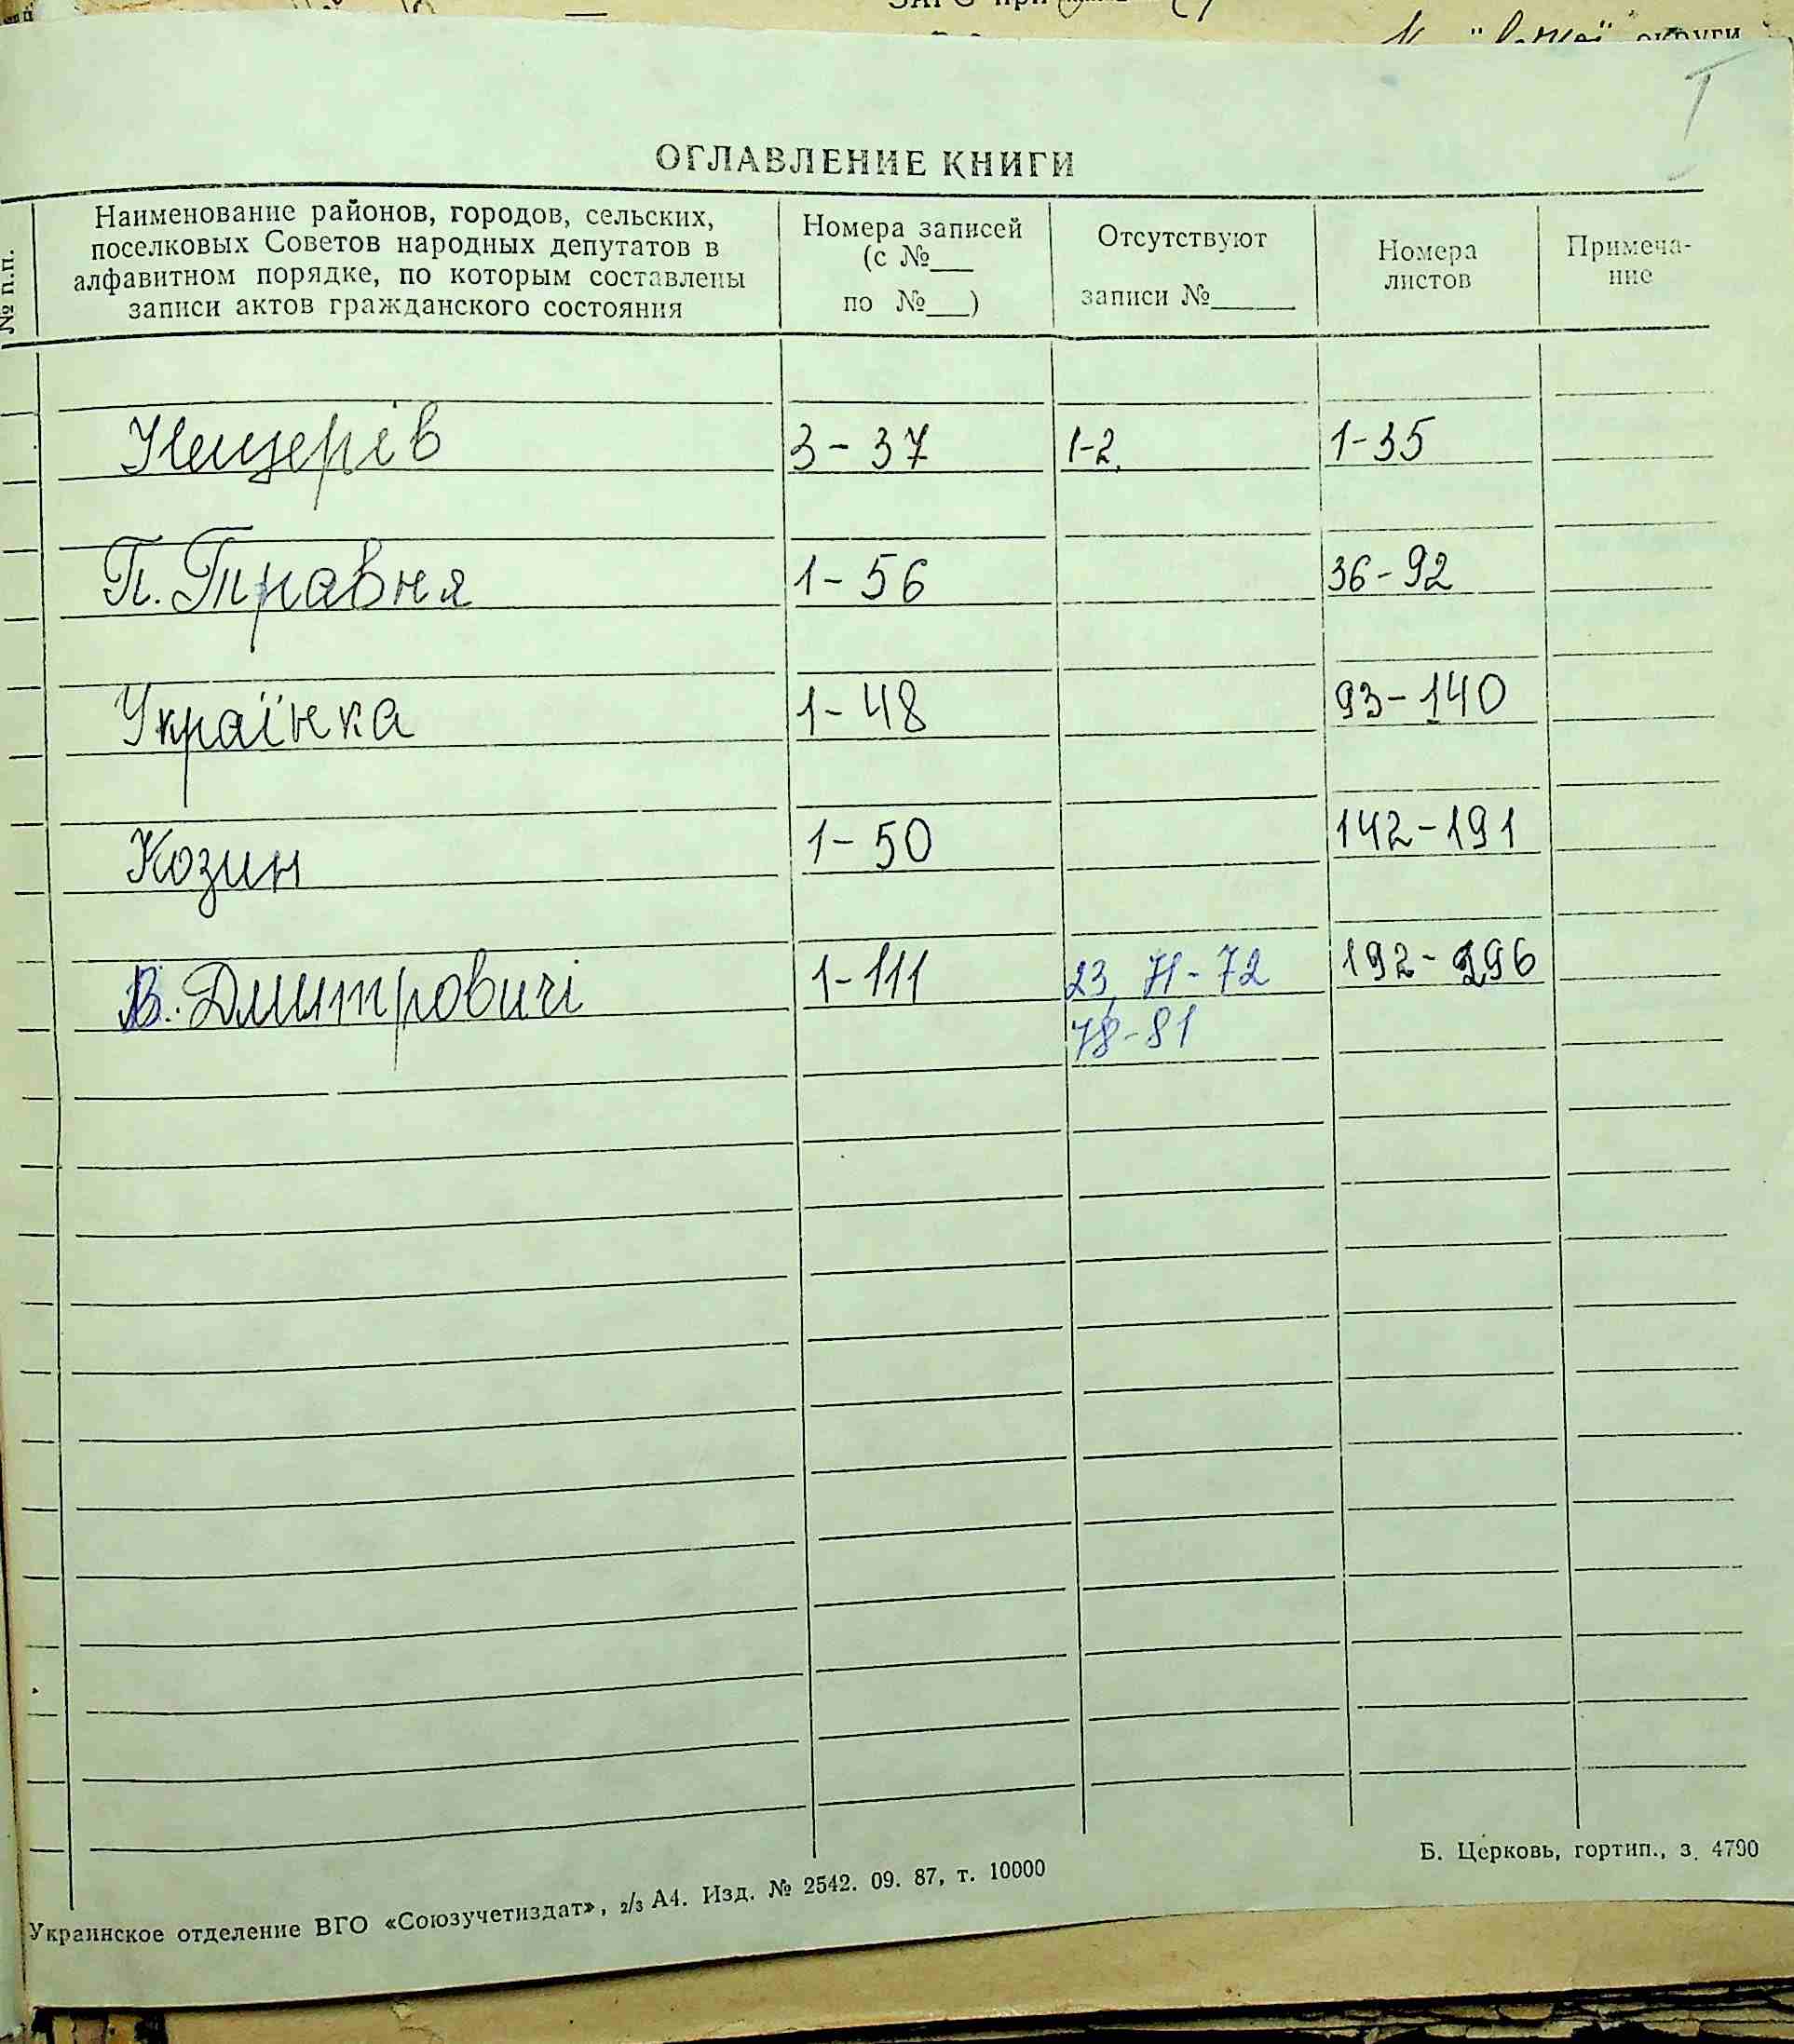 ЗАГС при
округи
ОГЛАВЛЕНИЕ КНИГИ
№ п.п.
Наименование районов, городов, сельских,
поселковых Советов народных депутатов в
алфавитном порядке, по которым составлены
записи актов гражданского состояния
Номера записей
(с №___
по №___)
Отсутствуют
записи №______
Номера
листов
Примеча-
ние
Нещерів 3-37 1-2 1-35
П. Травня 1-56 36-92
Українка 1-48 93-140
Козин 1-50 142-191
В. Дмитровичі 1-111 23, 71-72 192-296
78-81
Украинское отделение ВГО «Союзучетиздат», 2/3 А4. Изд. № 2542. 09. 87, т. 10000
Б. Церковь, гортип., з. 4790